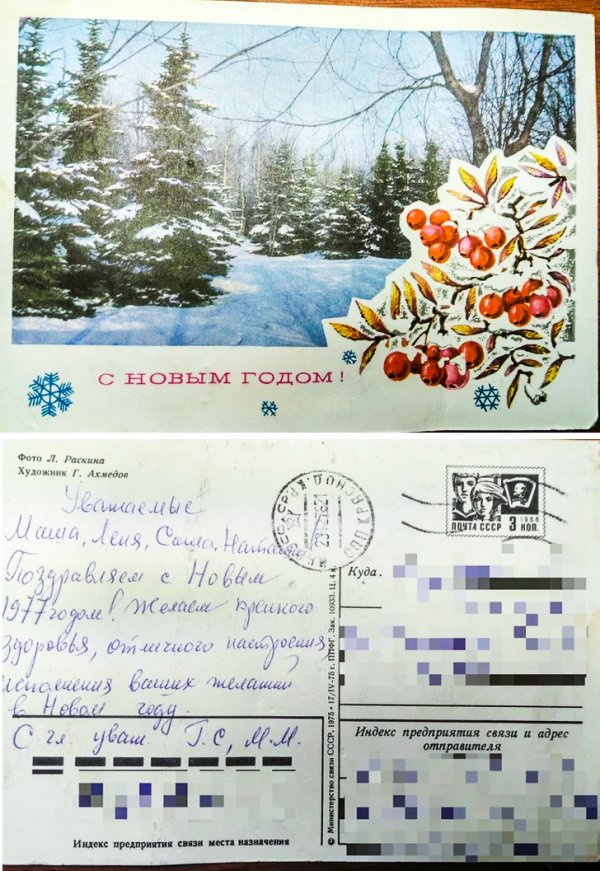 С НОВЫМ ГОДОМ!
Фото Л. Раскина
Художник Г. Ахмедов
Уважаемые
Маша, Лёня, Саша, Наташа!
Поздравляем с Новым
1977 годом! Желаем крепкого
здоровья, отличного настроения,
исполнения ваших желаний
в Новом году.
С гл. уваж. Г.С, М.М.
ПОЧТА СССР 3 КОП.
1966
Куда.
Индекс предприятия связи и адрес
отправителя
Индекс предприятия связи места назначения
© Министерство связи СССР, 1975 • 17/IV-75 г. ППФГ. Зак. 10933. Ц. 4 к.